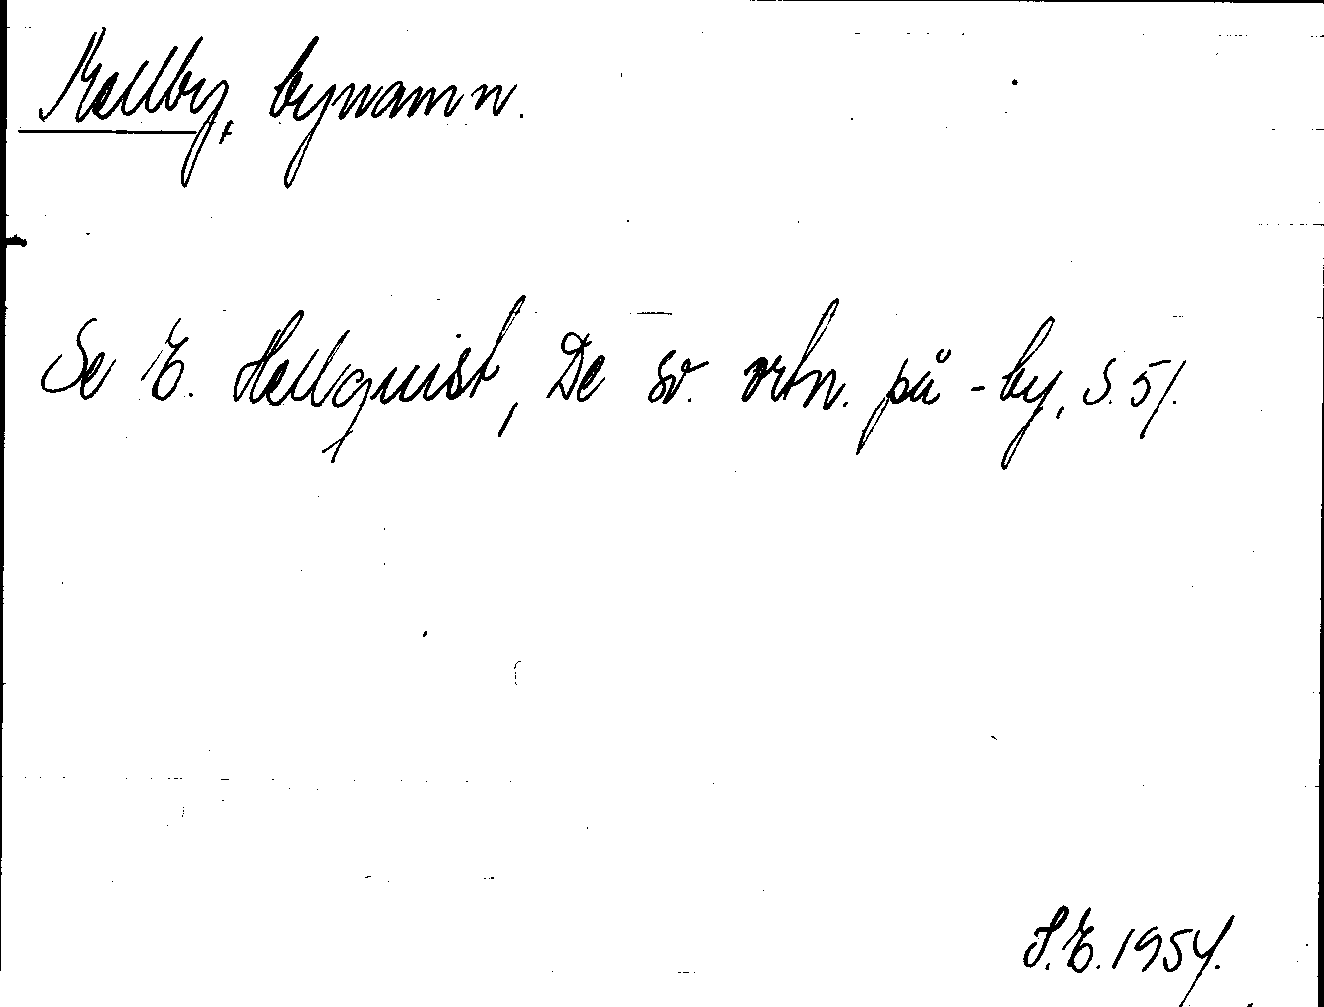 Mellby, bynamn.
Se E. Hellquist, De sv. ortn. på -by, S. 51.
S.E. 1954.